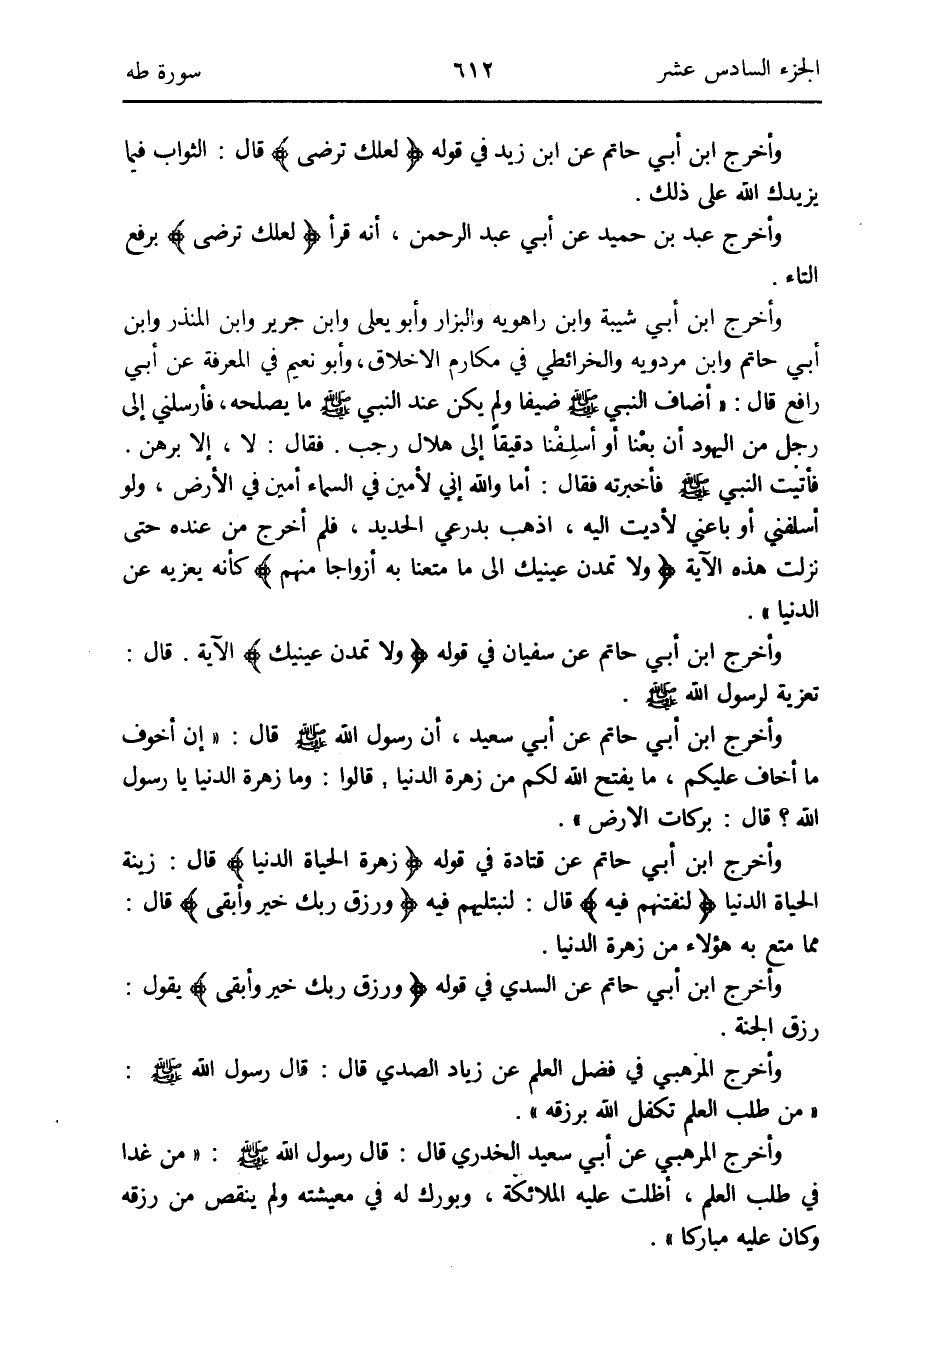 الجزء السادس عشر ٦١٢ سورة طه
وأخرج ابن أبي حاتم عن ابن زيد في قوله ﴿ لعلك ترضى ﴾ قال : الثواب فيما
يزيدك الله على ذلك .
وأخرج عبد بن حميد عن أبي عبد الرحمن ، أنه قرأ ﴿ لعلك ترضى ﴾ برفع
التاء .
وأخرج ابن أبي شيبة وابن راهويه والبزار وأبو يعلى وابن جرير وابن المنذر وابن
أبي حاتم وابن مردويه والخرائطي في مكارم الاخلاق، وأبو نعيم في المعرفة عن أبي
رافع قال : « أضاف النبي ﷺ ضيفا ولم يكن عند النبي ﷺ ما يصلحه، فأرسلني إلى
رجل من اليهود أن بعْنا أو أسلِفْنا دقيقاً إلى هلال رجب . فقال : لا ، إلا برهن .
فأتيت النبي ﷺ فأخبرته فقال : أما والله إني لأمين في السماء أمين في الأرض ، ولو
أسلفني أو باعني لأديت اليه ، اذهب بدرعي الحديد ، فلم أخرج من عنده حتى
نزلت هذه الآية ﴿ ولا تمدن عينيك الى ما متعنا به أزواجا منهم ﴾ كأنه يعزيه عن
الدنيا » .
وأخرج ابن أبي حاتم عن سفيان في قوله ﴿ ولا تمدن عينيك ﴾ الآية . قال :
تعزية لرسول الله ﷺ .
وأخرج ابن أبي حاتم عن أبي سعيد ، أن رسول الله ﷺ قال : « إن أخوف
ما أخاف عليكم ، ما يفتح الله لكم من زهرة الدنيا , قالوا : وما زهرة الدنيا يا رسول
الله ؟ قال : بركات الارض » .
وأخرج ابن أبي حاتم عن قتادة في قوله ﴿ زهرة الحياة الدنيا ﴾ قال : زينة
الحياة الدنيا ﴿ لنفتنهم فيه ﴾ قال : لنبتليهم فيه ﴿ ورزق ربك خير وأبقى ﴾ قال :
مما متع به هؤلاء من زهرة الدنيا .
وأخرج ابن أبي حاتم عن السدي في قوله ﴿ ورزق ربك خير وأبقى ﴾ يقول :
رزق الجنة .
وأخرج المرهبي في فضل العلم عن زياد الصدي قال : قال رسول الله ﷺ :
« من طلب العلم تكفل الله برزقه » .
وأخرج المرهبي عن أبي سعيد الخدري قال : قال رسول الله ﷺ : « من غدا
في طلب العلم ، أظلت عليه الملائكة ، وبورك له في معيشته ولم ينقص من رزقه
وكان عليه مباركا » .